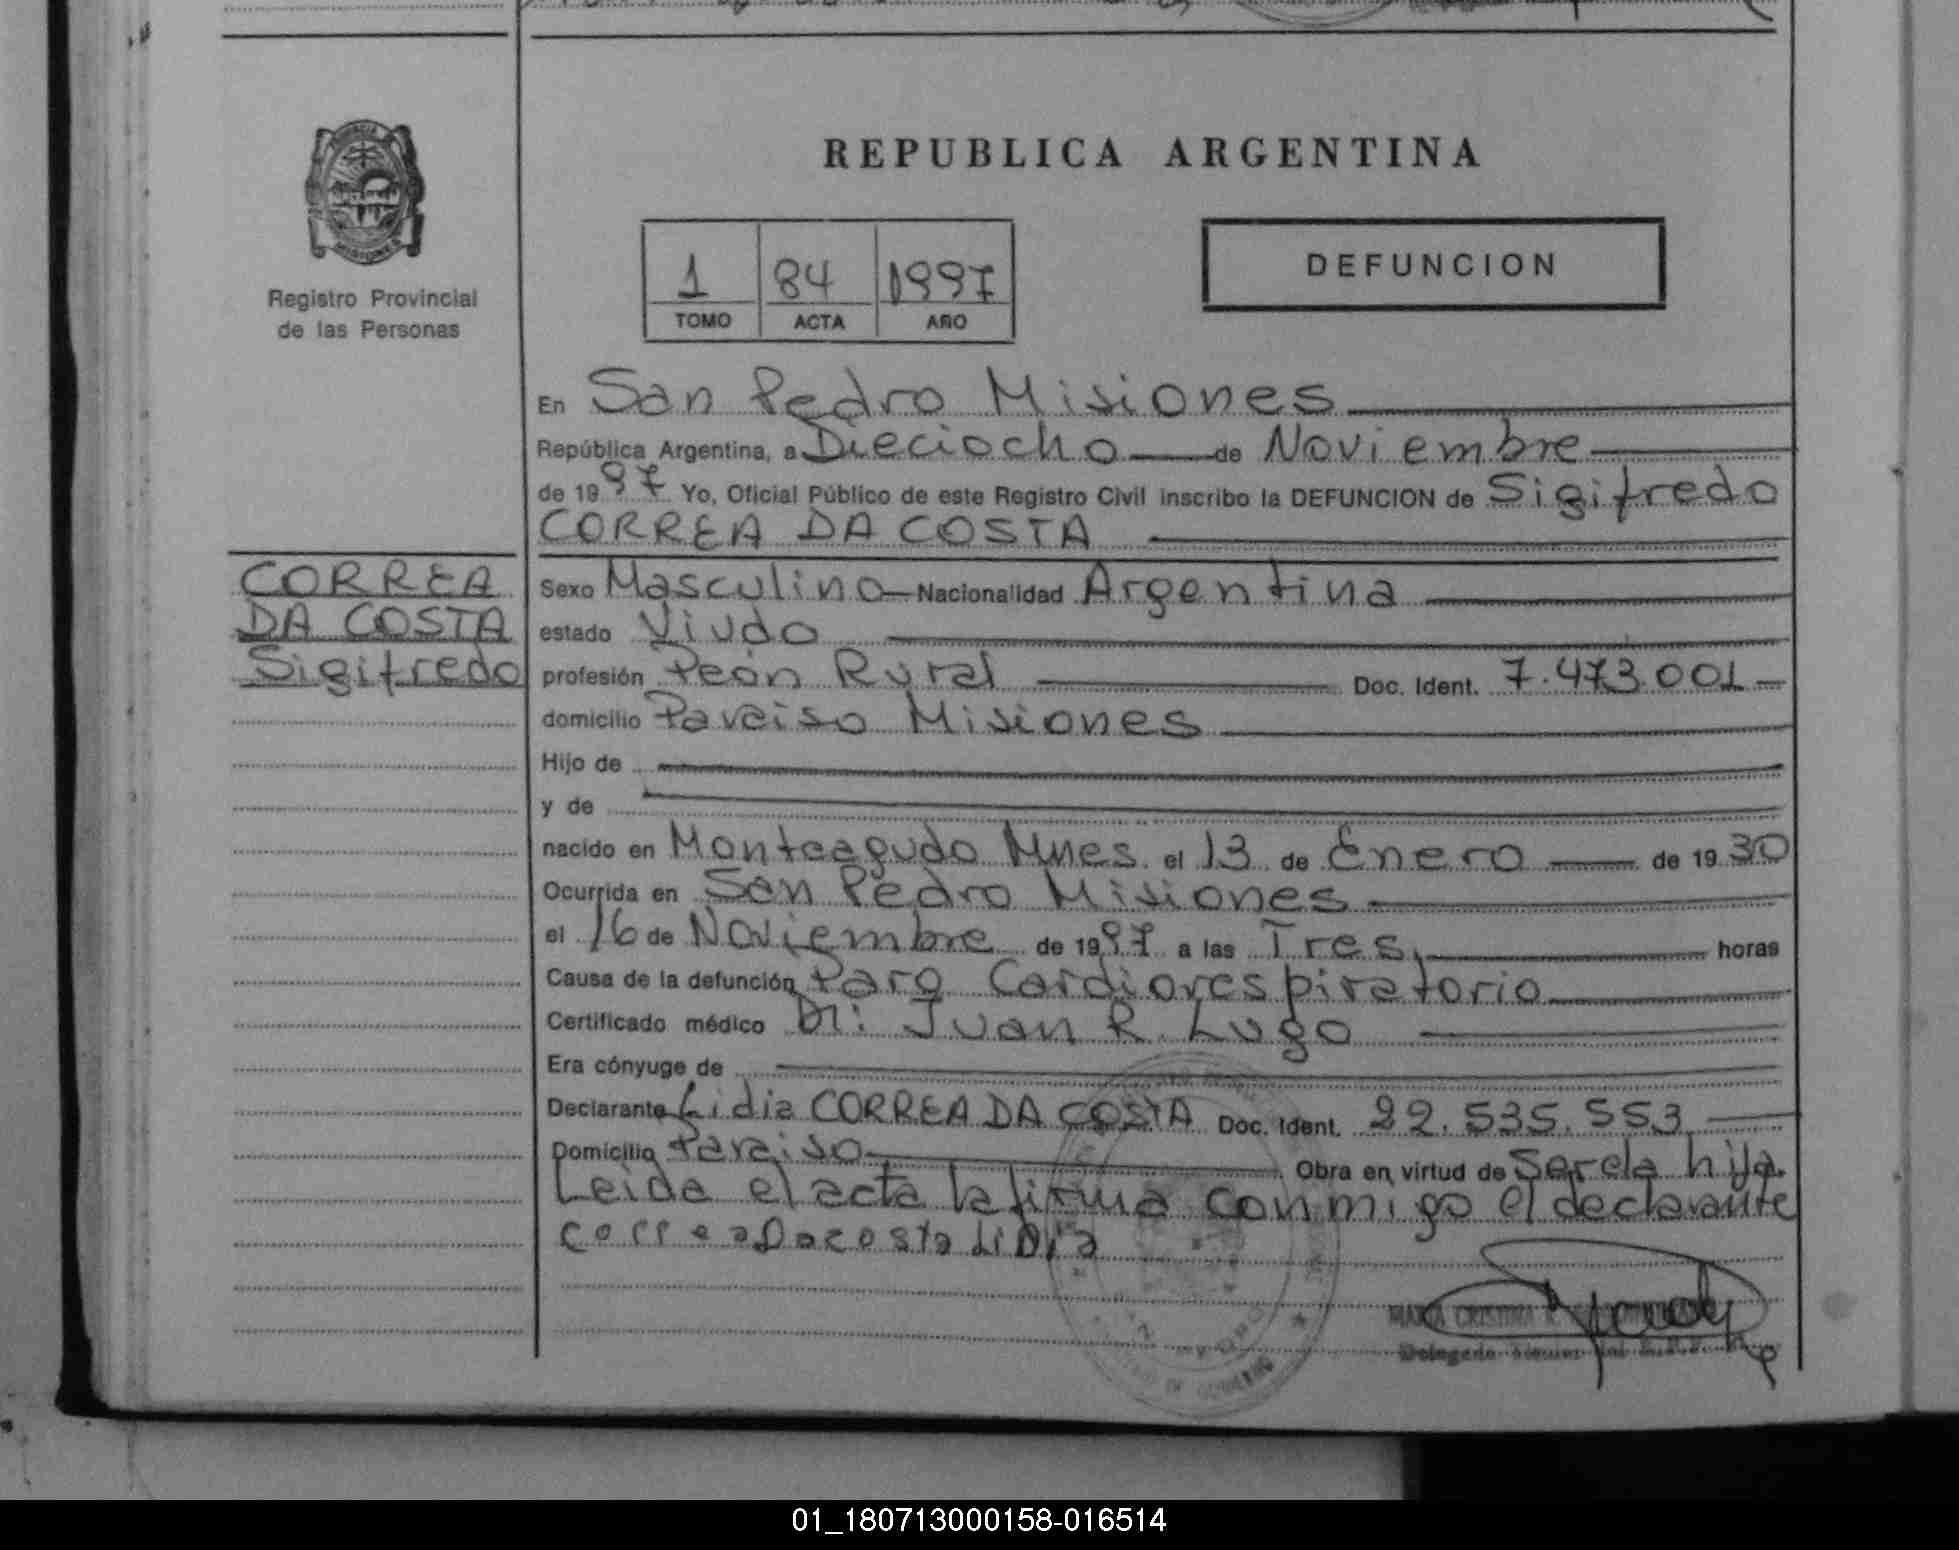 REPUBLICA ARGENTINA
MISIONES
Registro Provincial
de las Personas
1 84 1997
TOMO ACTA AÑO
DEFUNCION
En San Pedro Misiones
República Argentina, a Dieciocho de Noviembre
de 1997 Yo, Oficial Público de este Registro Civil inscribo la DEFUNCION de Sigifredo
CORREA DA COSTA
CORREA
DA COSTA
Sigifredo
Sexo Masculino Nacionalidad Argentina
estado Viudo
profesión Peón Rural Doc. Ident. 7.473.001
domicilio Paraiso Misiones
Hijo de
y de
nacido en Monteagudo Mnes. el 13 de Enero de 1930
Ocurrida en San Pedro Misiones
el 16 de Noviembre de 1997 a las Tres horas
Causa de la defunción Paro Cardiorespiratorio
Certificado médico Dr: Juan R. Lugo
Era cónyuge de
Declarante Lidia CORREA DA COSTA Doc. Ident. 22.535.553
Domicilio Paraiso Obra en virtud de Ser la hija.
Leida el acta la firma conmigo el declarante
correa Dacosta LiDia
MARIA CRISTINA
01_180713000158-016514